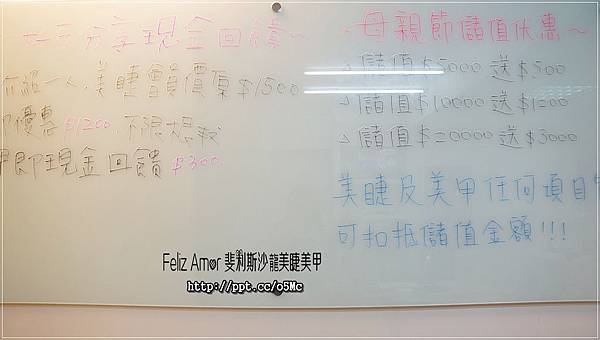 分享現金回饋~
介紹一人,美睫會員價原$1500
即優惠$1200.不限根數
即現金回饋$300.
~母親節儲值优惠~
儲值$5000送$500
儲值$10000送$1200
儲值$20000送$3000
美睫及美甲任何項目
可扣抵儲值金額!!!
Feliz Amor 斐利斯沙龍美睫美甲
http://ppt.cc/o5Mc